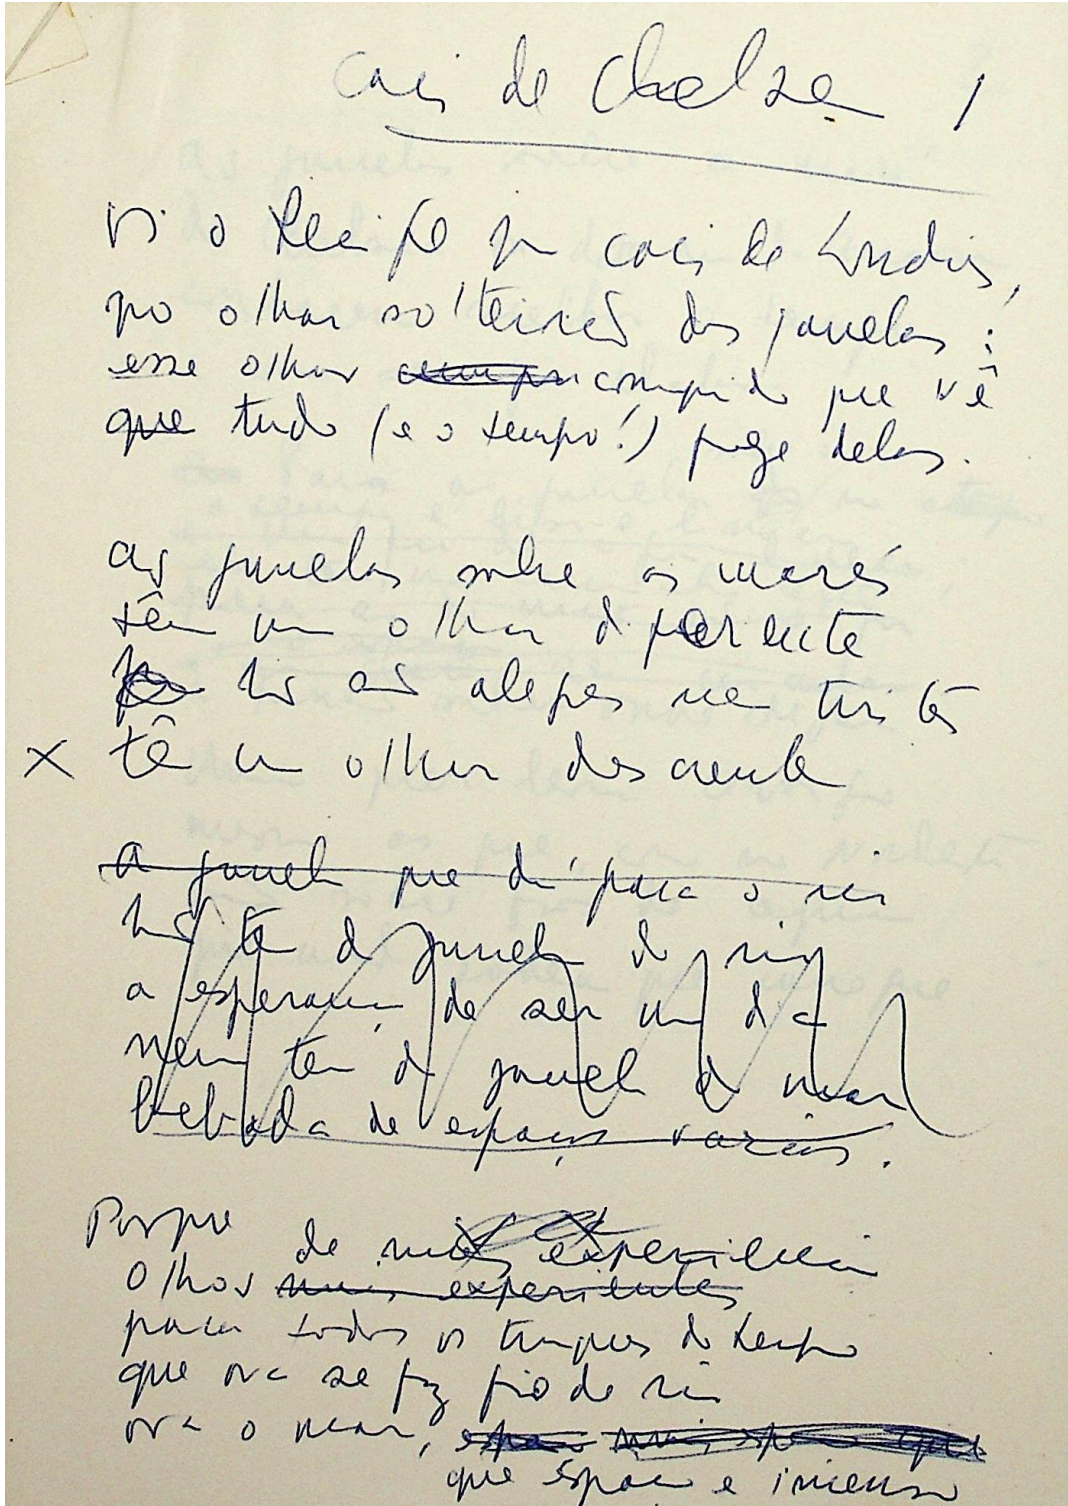 Cais de Chelsea 1
Vi o Recife num cais de Londres,
no olhar solteirão das janelas:
esse olhar comprido que vê
que tudo (e o tempo!) foge delas.
as janelas sobre as marés
têm um olhar diferente
não são alegres nem tristes
têm um olhar descrente
a janela que dá para o rio
Não têm da janela do rio
a esperança de ser um dia
nem tem da janela do mar
bebada de espaços vazios.
Porque
de mais experiência
Olhos mais experientes
para todos os tempos do tempo
que ora se faz fio de rio
ora o mar,
que espaço e imenso